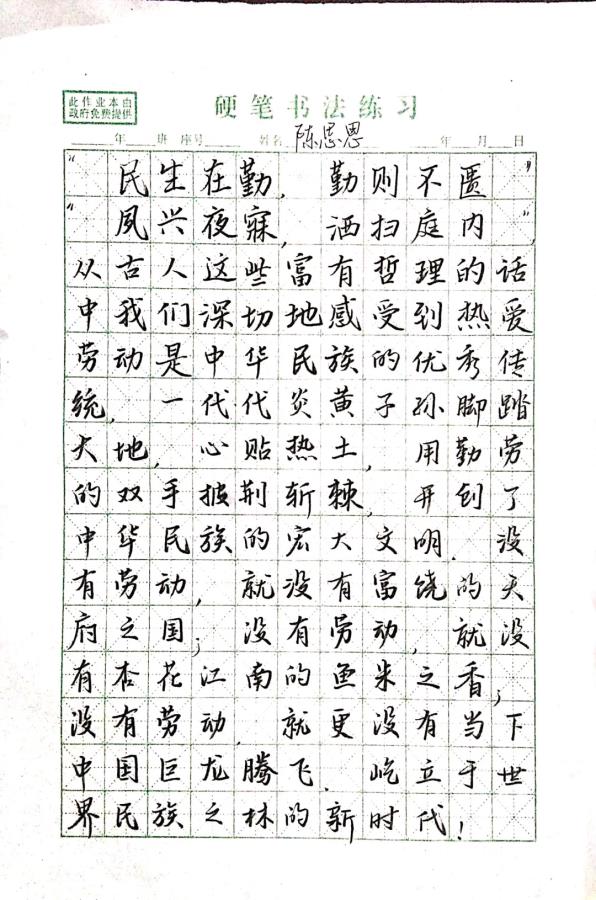 此作业本由
政府免费提供
硬笔书法练习
年 班 座号 姓名 陈思恩 年 月 日
“民生在勤，勤则不匮”
“夙兴夜寐，洒扫庭内”，
从古人这些富有哲理的话
中我们深切地感受到热爱
劳动是中华民族的优秀传
统，一代代炎黄子孙脚踏
大地，心贴热土，用勤劳
的双手披荆斩棘，开创了
中华民族的宏大文明．没
有劳动，就没有富饶的天
府之国；没有劳动，就没
有杏花江南的鱼米之香；
没有劳动，就更没有当下
中国巨龙腾飞．屹立于世
界民族之林的新时代！